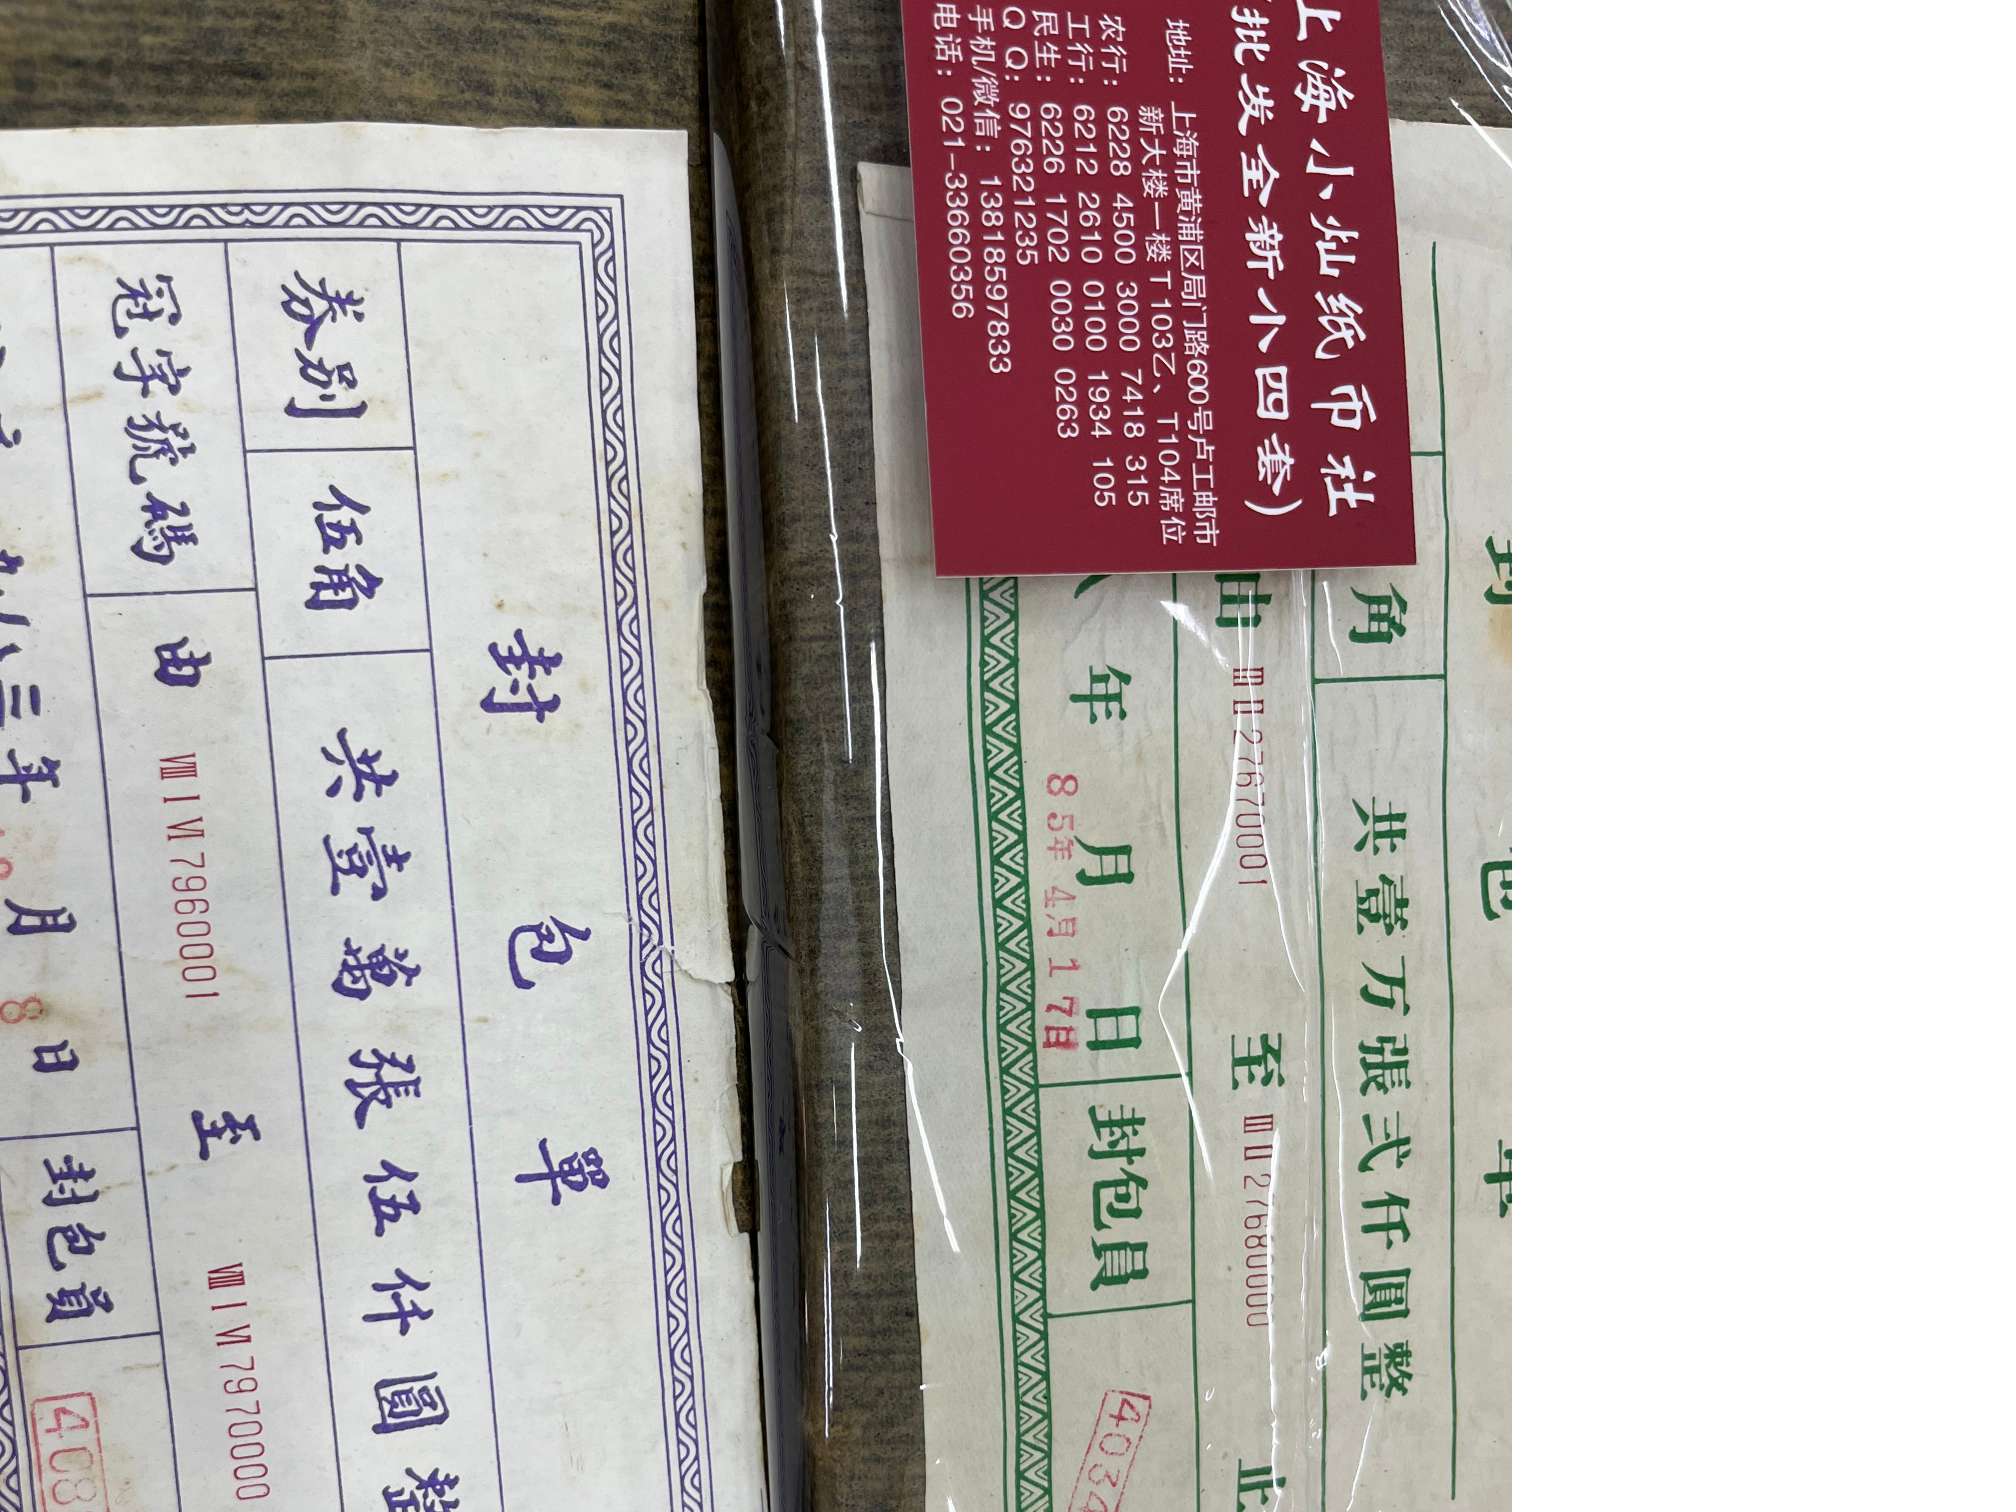 上海小灿纸币社
批发全新小四套）
地址：上海市黄浦区局门路600号卢工邮市
新大楼一楼T103乙、T104席位
农行：6228 4500 3000 7418 315
工行：6212 2610 0100 1934 105
民生：6226 1702 0030 0263
Q Q：976321235
手机/微信：13818597833
电话：021-33660356
封包單
券别 伍角 共壹萬張伍仟圓整
冠字號碼 由 ⅧⅠⅥ7960001 至 ⅧⅠⅥ7970000
八三年 月 8日 封包員 408
角 共壹万張弍仟圓整
由 ⅢⅡ27670001 至 ⅢⅡ27680000 止
年 月 日 封包員 4034
85年4月17日